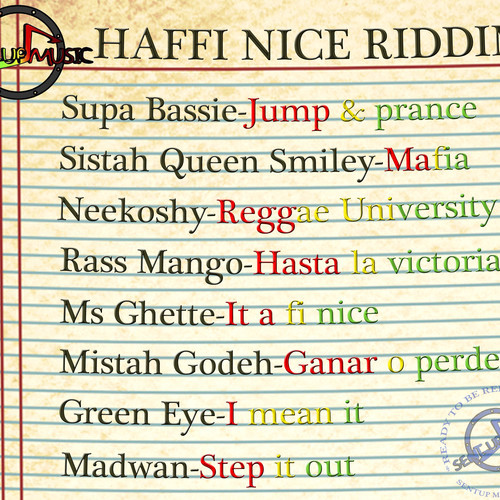 UP MUSIC
HAFFI NICE RIDDI
Supa Bassie-Jump & prance
Sistah Queen Smiley-Mafia
Neekoshy-Reggae University
Rass Mango-Hasta la victoria
Ms Ghette-It a fi nice
Mistah Godeh-Ganar o perde
Green Eye-I mean it
Madwan-Step it out
READY TO BE RE
SENTUP M